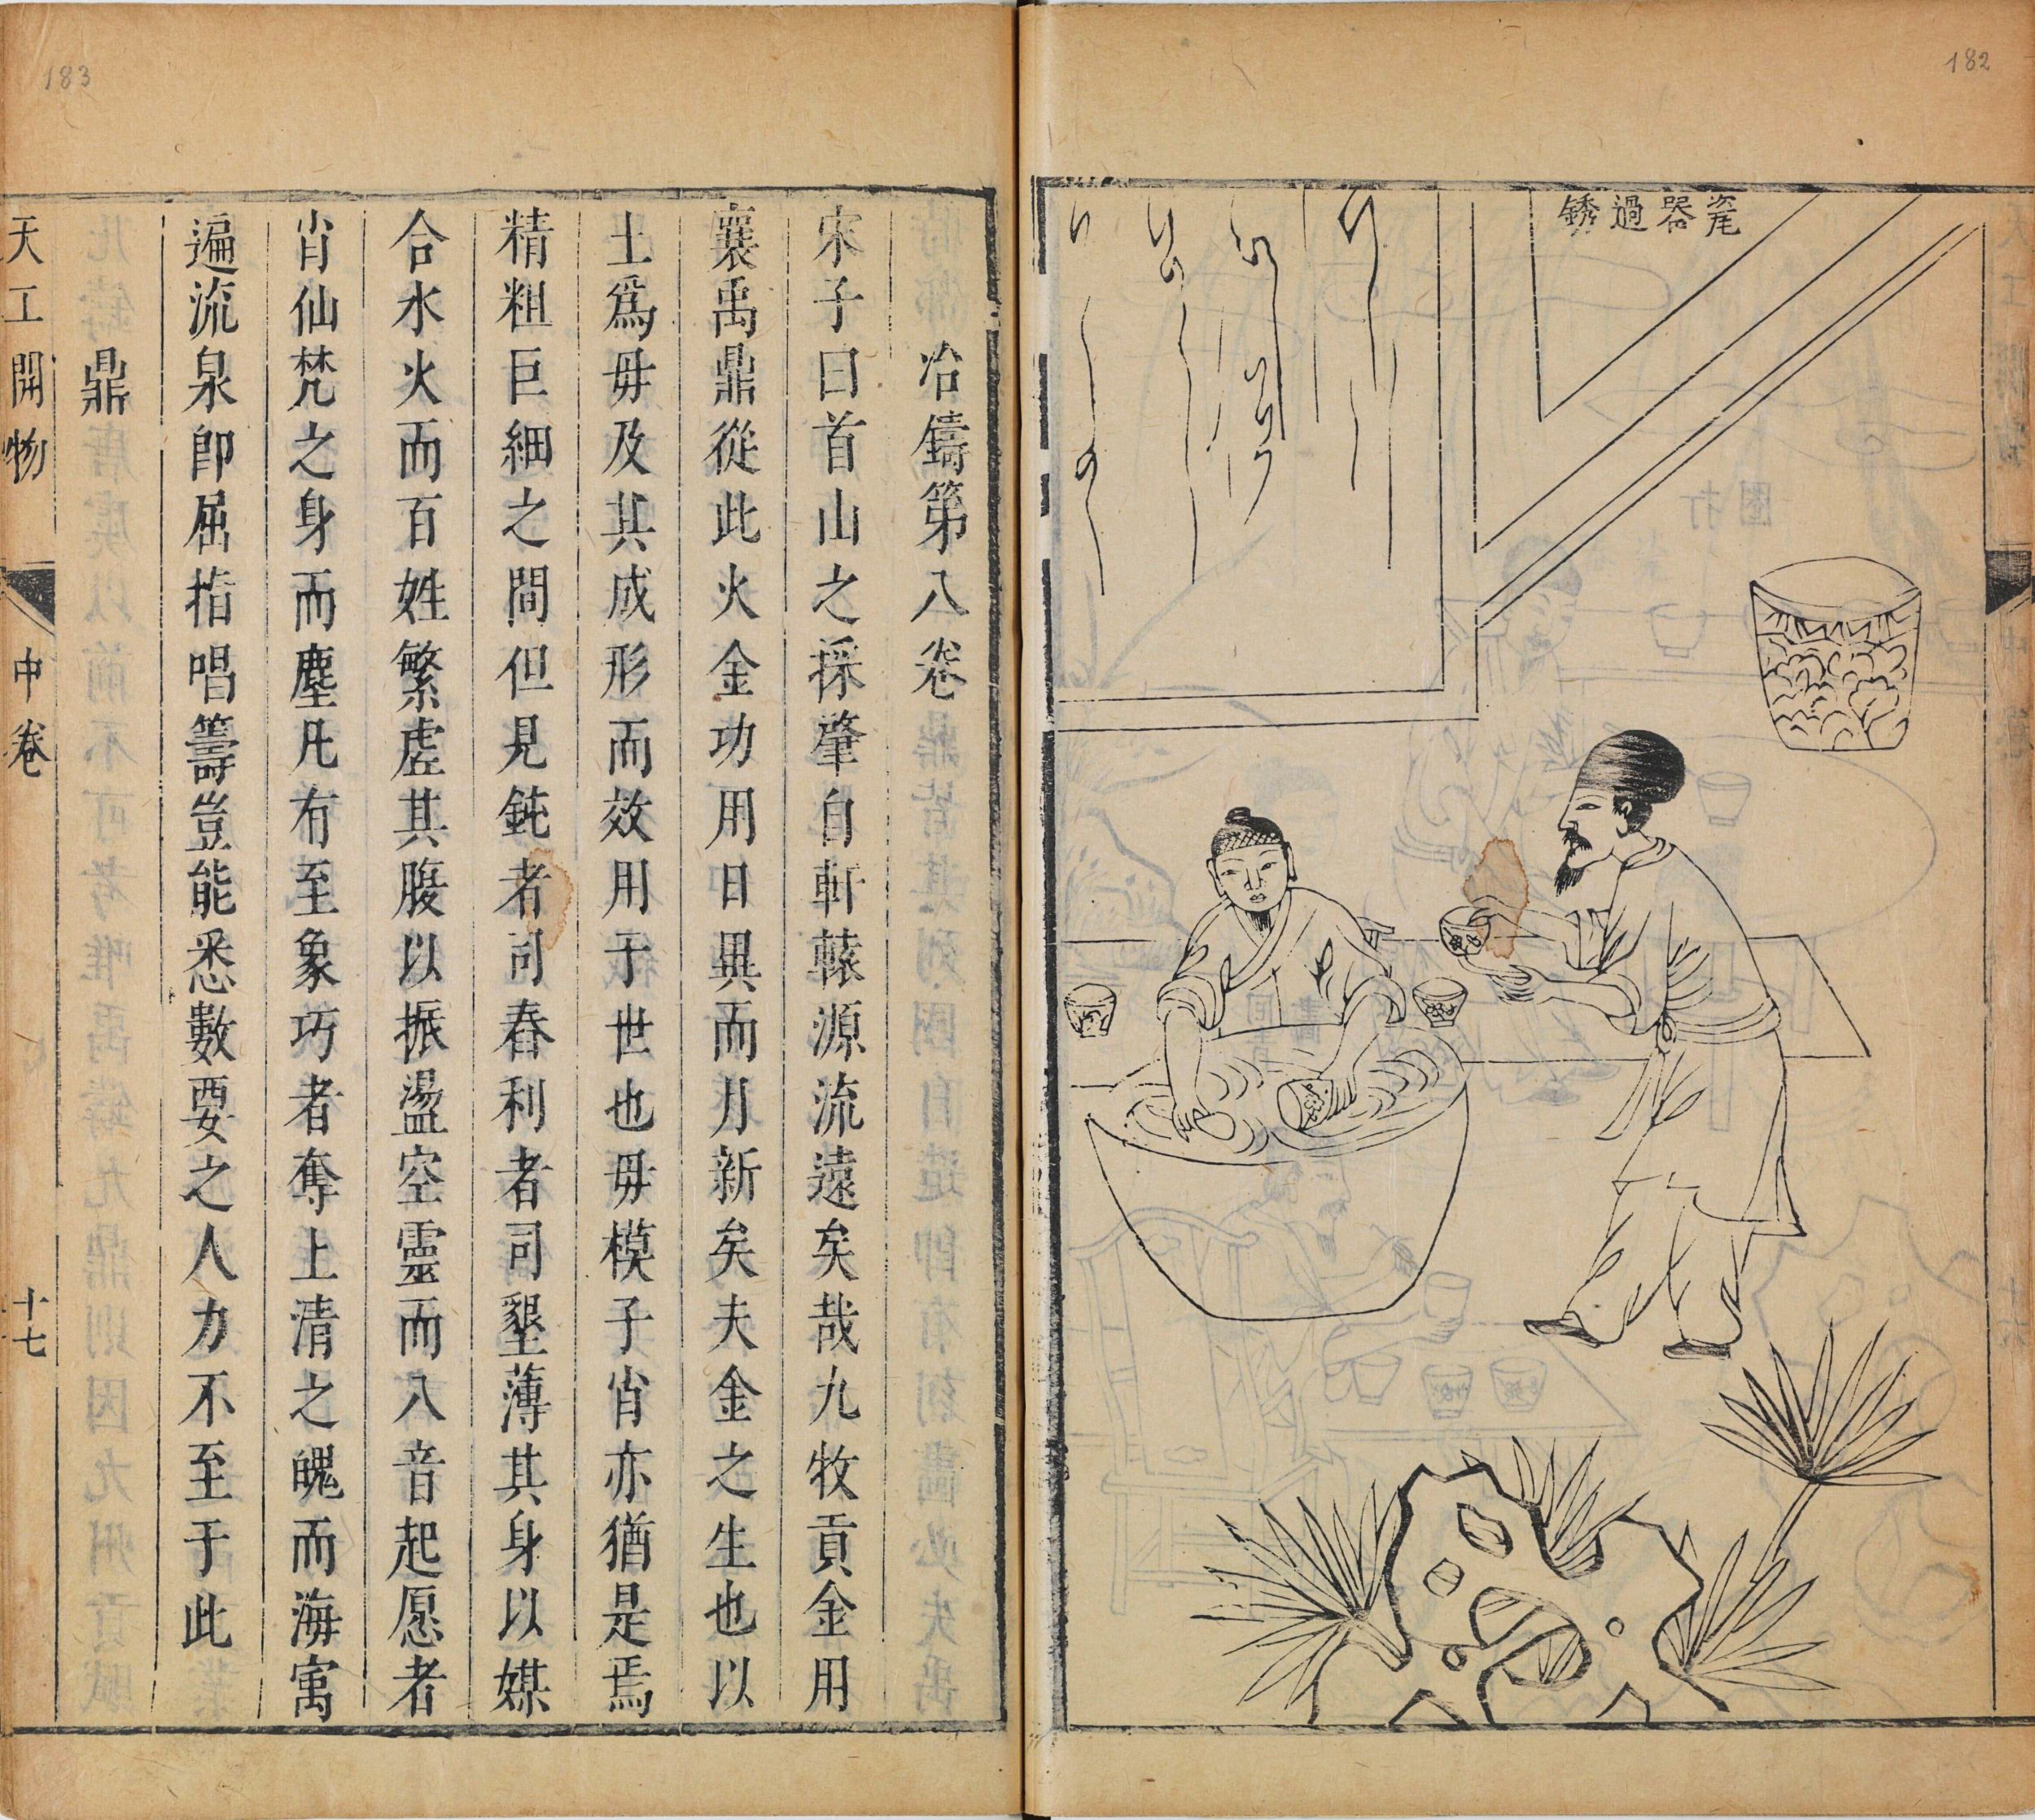 182
瓷器過銹
183
冶鑄第八卷
宋子曰首山之採肇自軒轅源流遠矣哉九牧貢金用
襄禹鼎從此火金功用日異而月新矣夫金之生也以
土爲毋及其成形而效用于世也毋模子肖亦猶是焉
精粗巨細之間但見鈍者司舂利者司墾薄其身以媒
合水火而百姓繁虛其腹以振盪空靈而八音起愿者
肖仙梵之身而塵凡有至象巧者奪上清之魄而海寓
遍流泉卽屈指唱籌豈能悉數要之人力不至于此
鼎
天工開物
中卷
十七